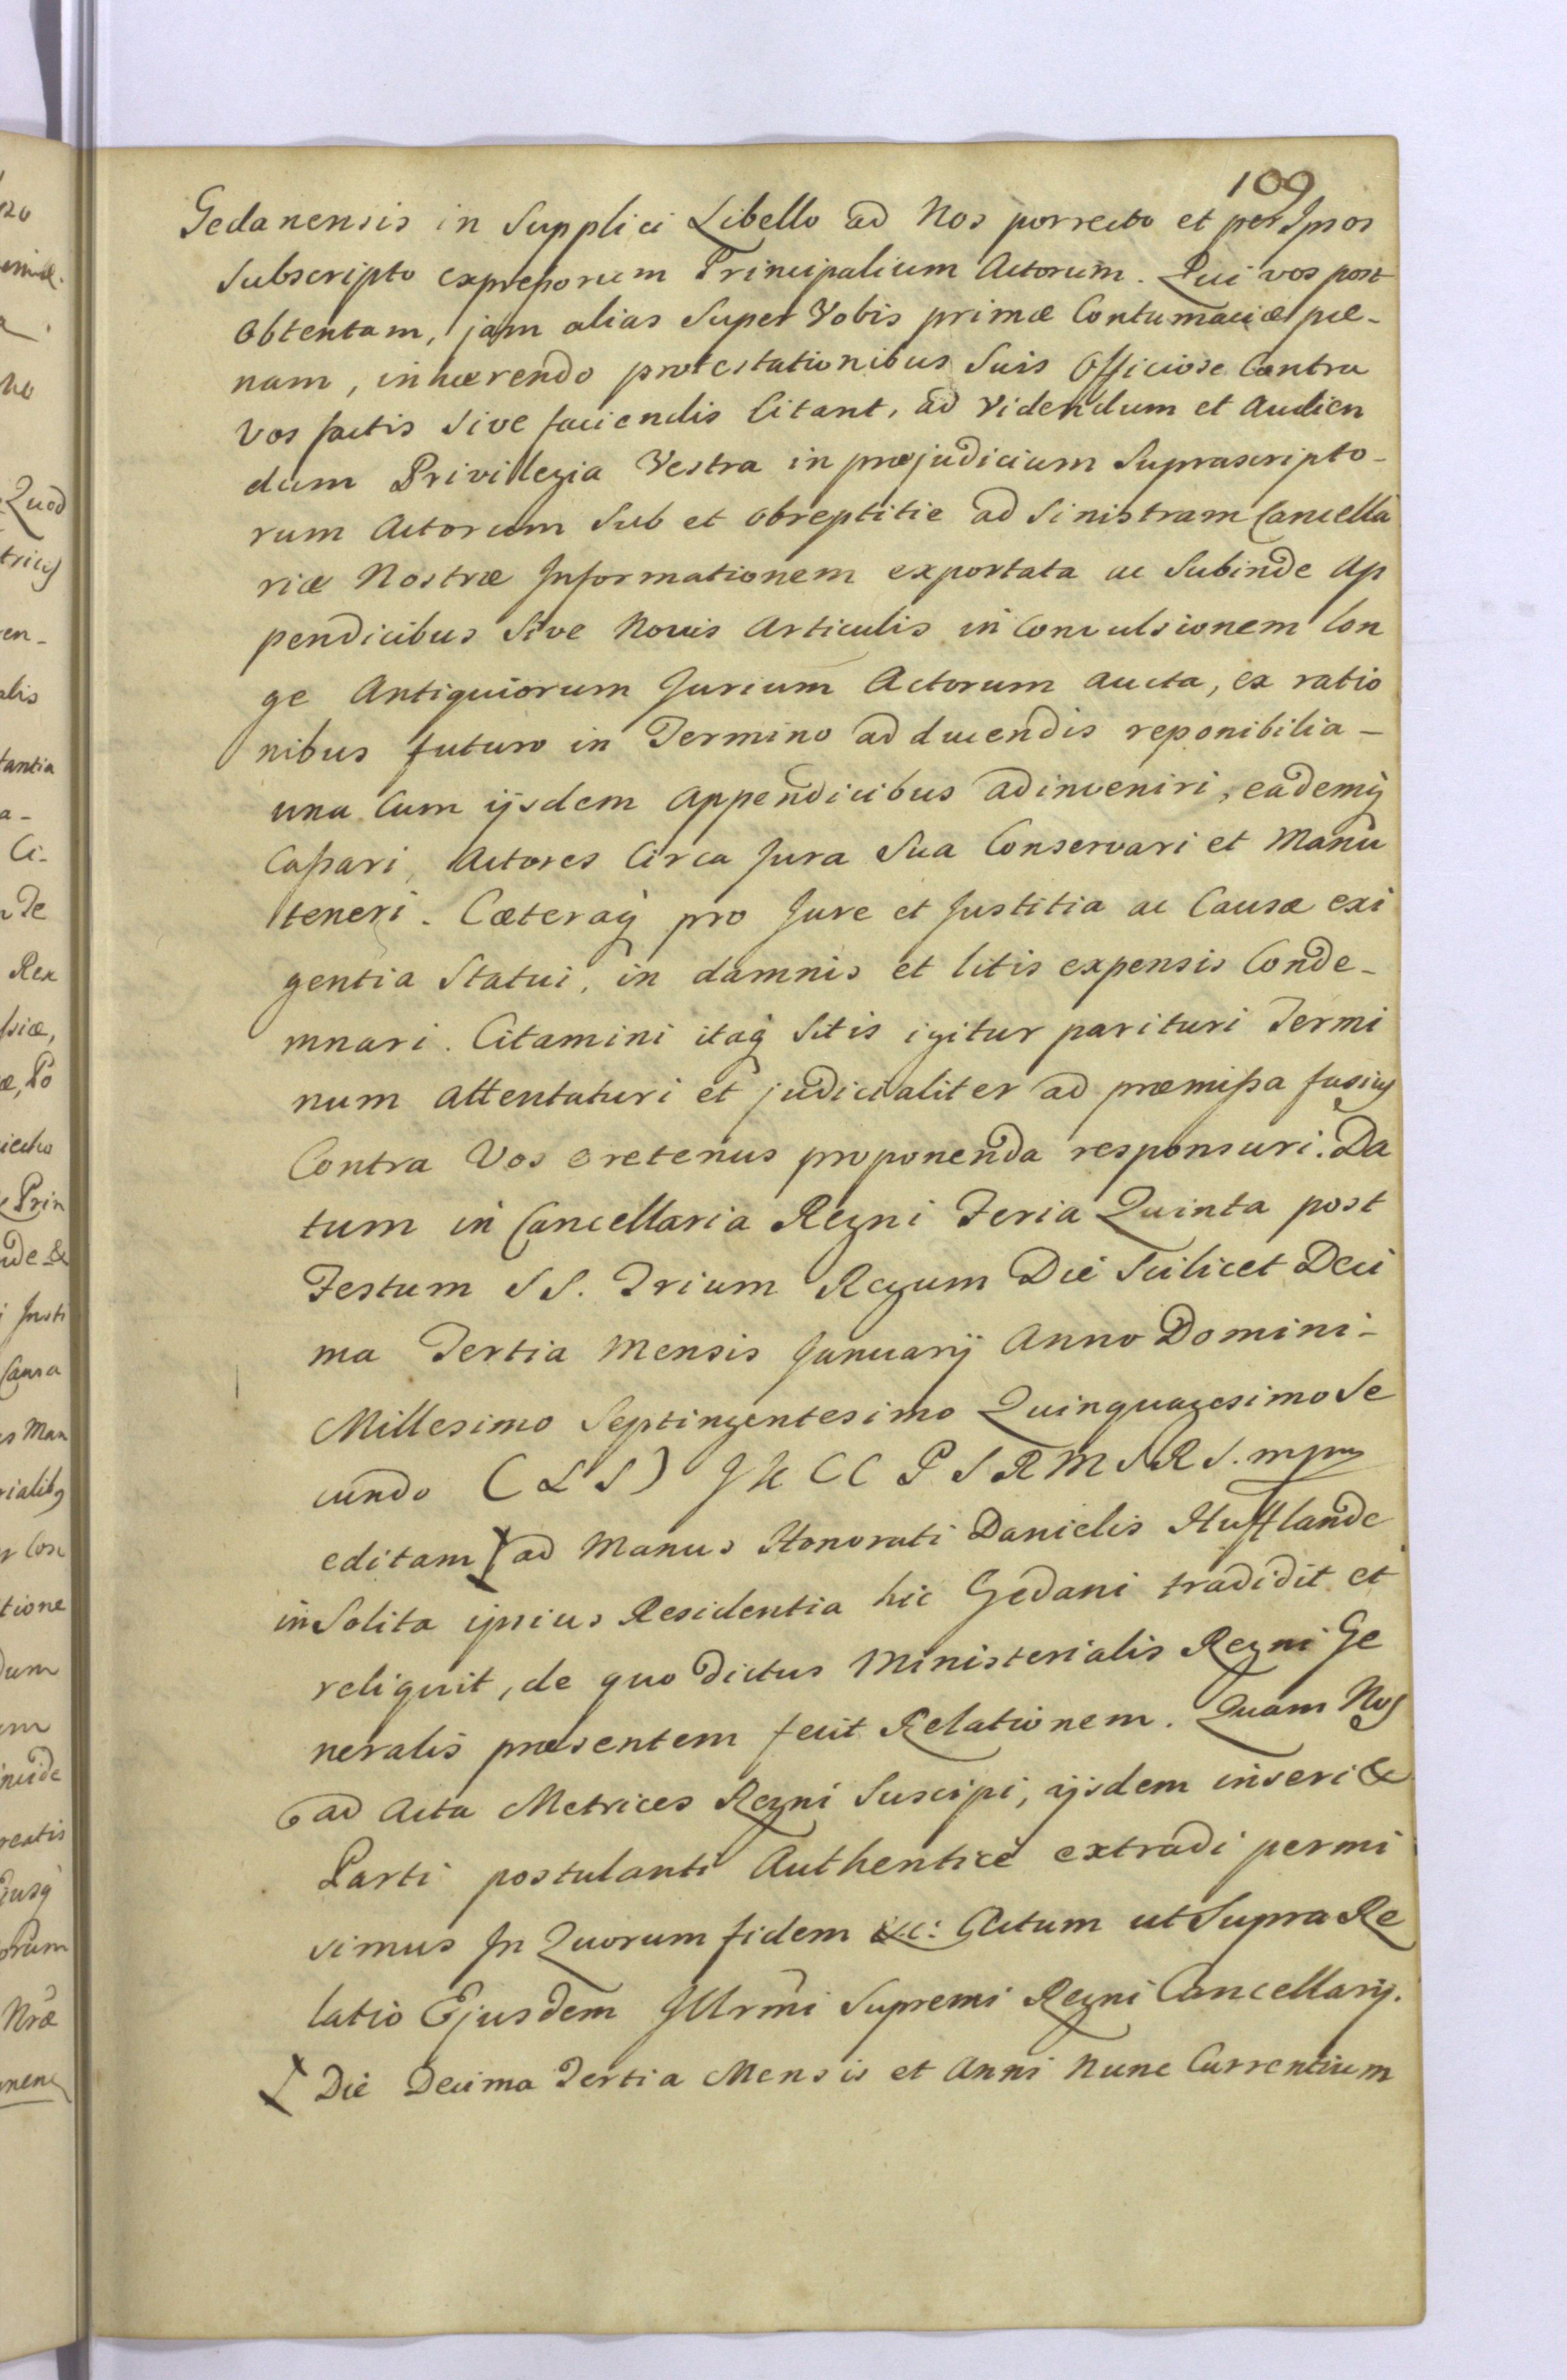 109
Gedanensis in Supplici Libello ad Nos porrecto et per Ipsos
Subscripto expreßorum Principalium Actorum. Qui vos post
obtentam, jam alias Super Vobis primæ Contumaciæ pæ-
nam, inhærendo protestationibus Suis Officiose Contra
vos factis Sive faciendis Citant, ad Videndum et Audien
dum Privilegia Vestra in præjudicium Suprascripto-
rum Actorum Sub et obreptitie ad Sinistram Cancella
riæ Nostræ Informationem exportata ac Subinde Ap
pendicibus Sive Novis Articulis in Convulsionem lon
ge Antiquiorum Jurium Actorum aucta, ex ratio
nibus futuro in Termino adducendis reponibilia -
una Cum ijsdem Appendicibus adinveniri, eademq
Caßari, Actores Circa Jura Sua Conservari et Manu
teneri. Cæteraq pro Jure et Justitia ac Causæ exi
gentia Statui, in damnis et litis expensis Conde-
mnari. Citamini itaq Sitis igitur parituri Termi
num attentaturi et judicialiter ad præmißa fusius
Contra Vos oretenus proponenda responsuri. Da
tum in Cancellaria Regni Feria Quinta post
Festum SS. Trium Regum Die Scilicet Deci
ma Tertia Mensis Januarij Anno Domini -
Millesimo Septingentesimo Quinquagesimo Se
cundo (L S) J K CC P S R M S R S. mpp
editam ad Manus Honorati Danielis Hufflande
in Solita ipsius Residentia hic Gedani tradidit et
reliquit, de quo dictus Ministerialis Regni Ge
neralis præsentem fecit Relationem. Quam Nos
ad Acta Metrices Regni Suscipi, ijsdem inseri &
Parti postulanti Authentice extradi permi
simus In Quorum fidem &c: Actum ut Supra Re
latio Ejusdem Illrmi Supremi Regni Cancellarij.
Die Decima Tertia Mensis et Anni Nunc Currentium